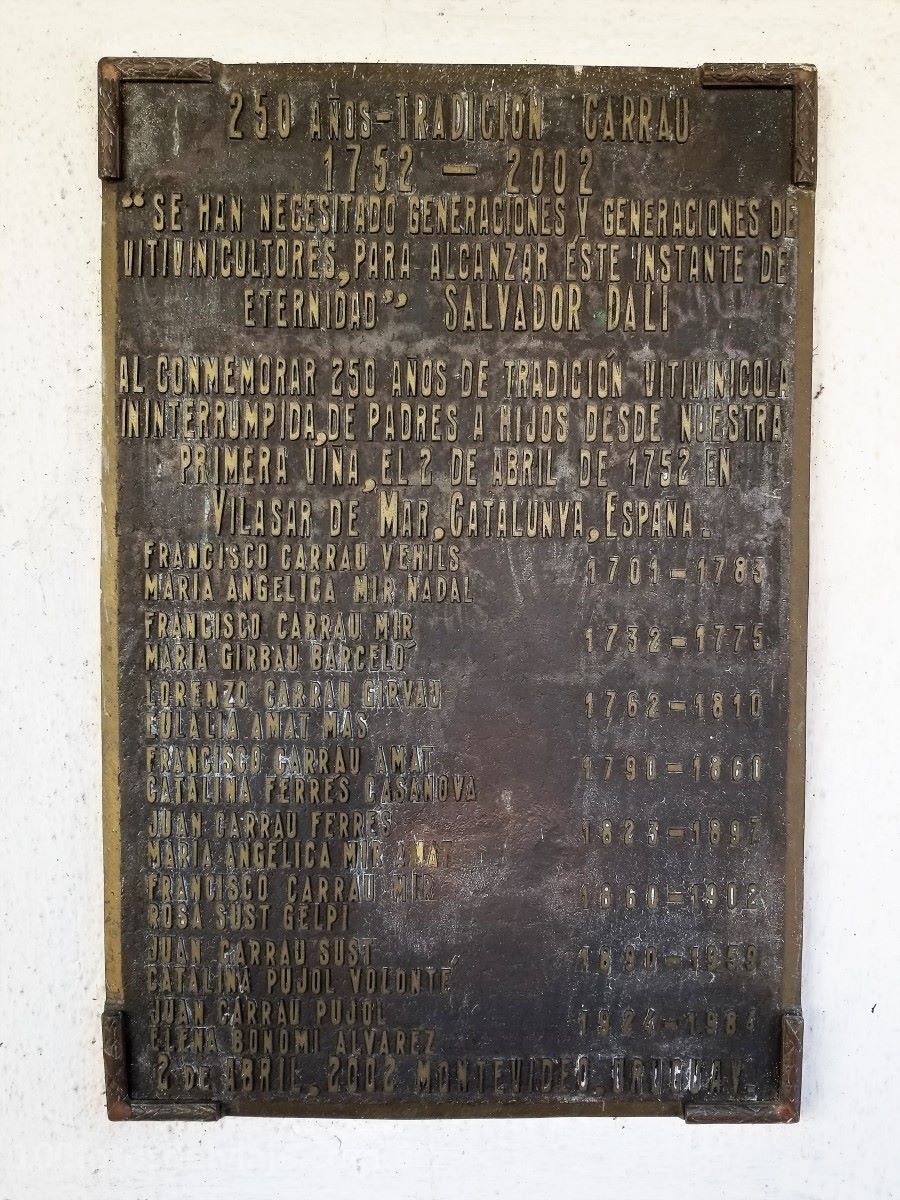 250 AÑOS-TRADICIÓN CARRAU
1752 — 2002
“SE HAN NECESITADO GENERACIONES Y GENERACIONES DE
VITIVINICULTORES, PARA ALCANZAR ESTE INSTANTE DE
ETERNIDAD” SALVADOR DALI
AL CONMEMORAR 250 AÑOS DE TRADICIÓN VITIVINICOLA
ININTERRUMPIDA, DE PADRES A HIJOS DESDE NUESTRA
PRIMERA VIÑA, EL 2 DE ABRIL DE 1752 EN
VILASAR DE MAR, CATALUNYA, ESPAÑA.
FRANCISCO CARRAU VEHILS 1701-1783
MARIA ANGELICA MIR NADAL
FRANCISCO CARRAU MIR 1732-1775
MARIA GIRBAU BARCELO
LORENZO CARRAU GIRVAU 1762-1810
EULALIA AMAT MAS
FRANCISCO CARRAU AMAT 1790-1860
CATALINA FERRES CASANOVA
JUAN CARRAU FERRES 1823-1897
MARIA ANGELICA MIR AMAT
FRANCISCO CARRAU MIR 1860-1902
ROSA SUST GELPI
JUAN CARRAU SUST 1890-1959
CATALINA PUJOL VOLONTÉ
JUAN CARRAU PUJOL 1924-1984
ELENA BONOMI ALVAREZ
2 DE ABRIL, 2002 MONTEVIDEO. URUGUAY.